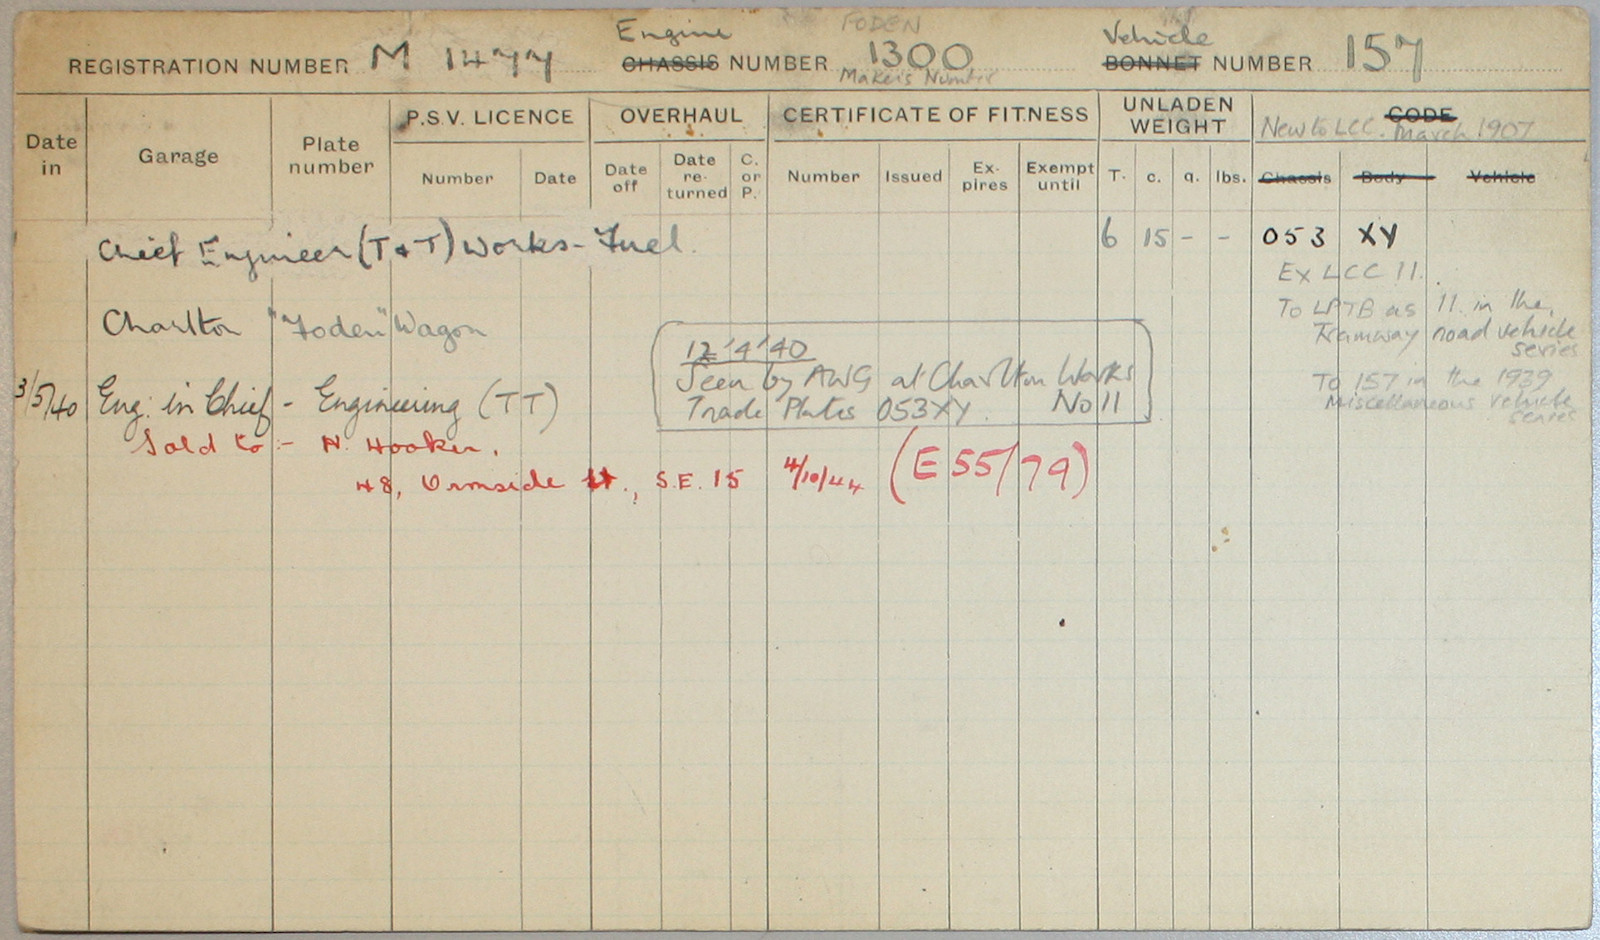 Engine FODEN Vehicle
REGISTRATION NUMBER M 1477 CHASSIS NUMBER 1300 BONNET NUMBER 157
Makers Number
Date in Garage Plate number P.S.V. LICENCE OVERHAUL CERTIFICATE OF FITNESS UNLADEN WEIGHT CODE
New to LCC. March 1907
Number Date Date off Date re-turned C. or P. Number Issued Ex-pires Exempt until T. c. q. lbs. Chassis Body Vehicle
Chief Engineer (T & T) Works - Fuel. 6 15 - - 053 XY
Ex LCC 11.
Charlton "Foden" Wagon
To LPTB as 11. in the
Tramway road vehicle
series
12 '4 '40
Seen by AWG at Charlton Works
Trade Plates 053XY. No 11
To 157 in the 1939
Miscellaneous vehicle
series
3/5/40 Eng. in Chief - Engineering (TT)
Sold to :- N. Hooker.
48, Ormside St., S.E. 15 4/10/44 (E 55/79)